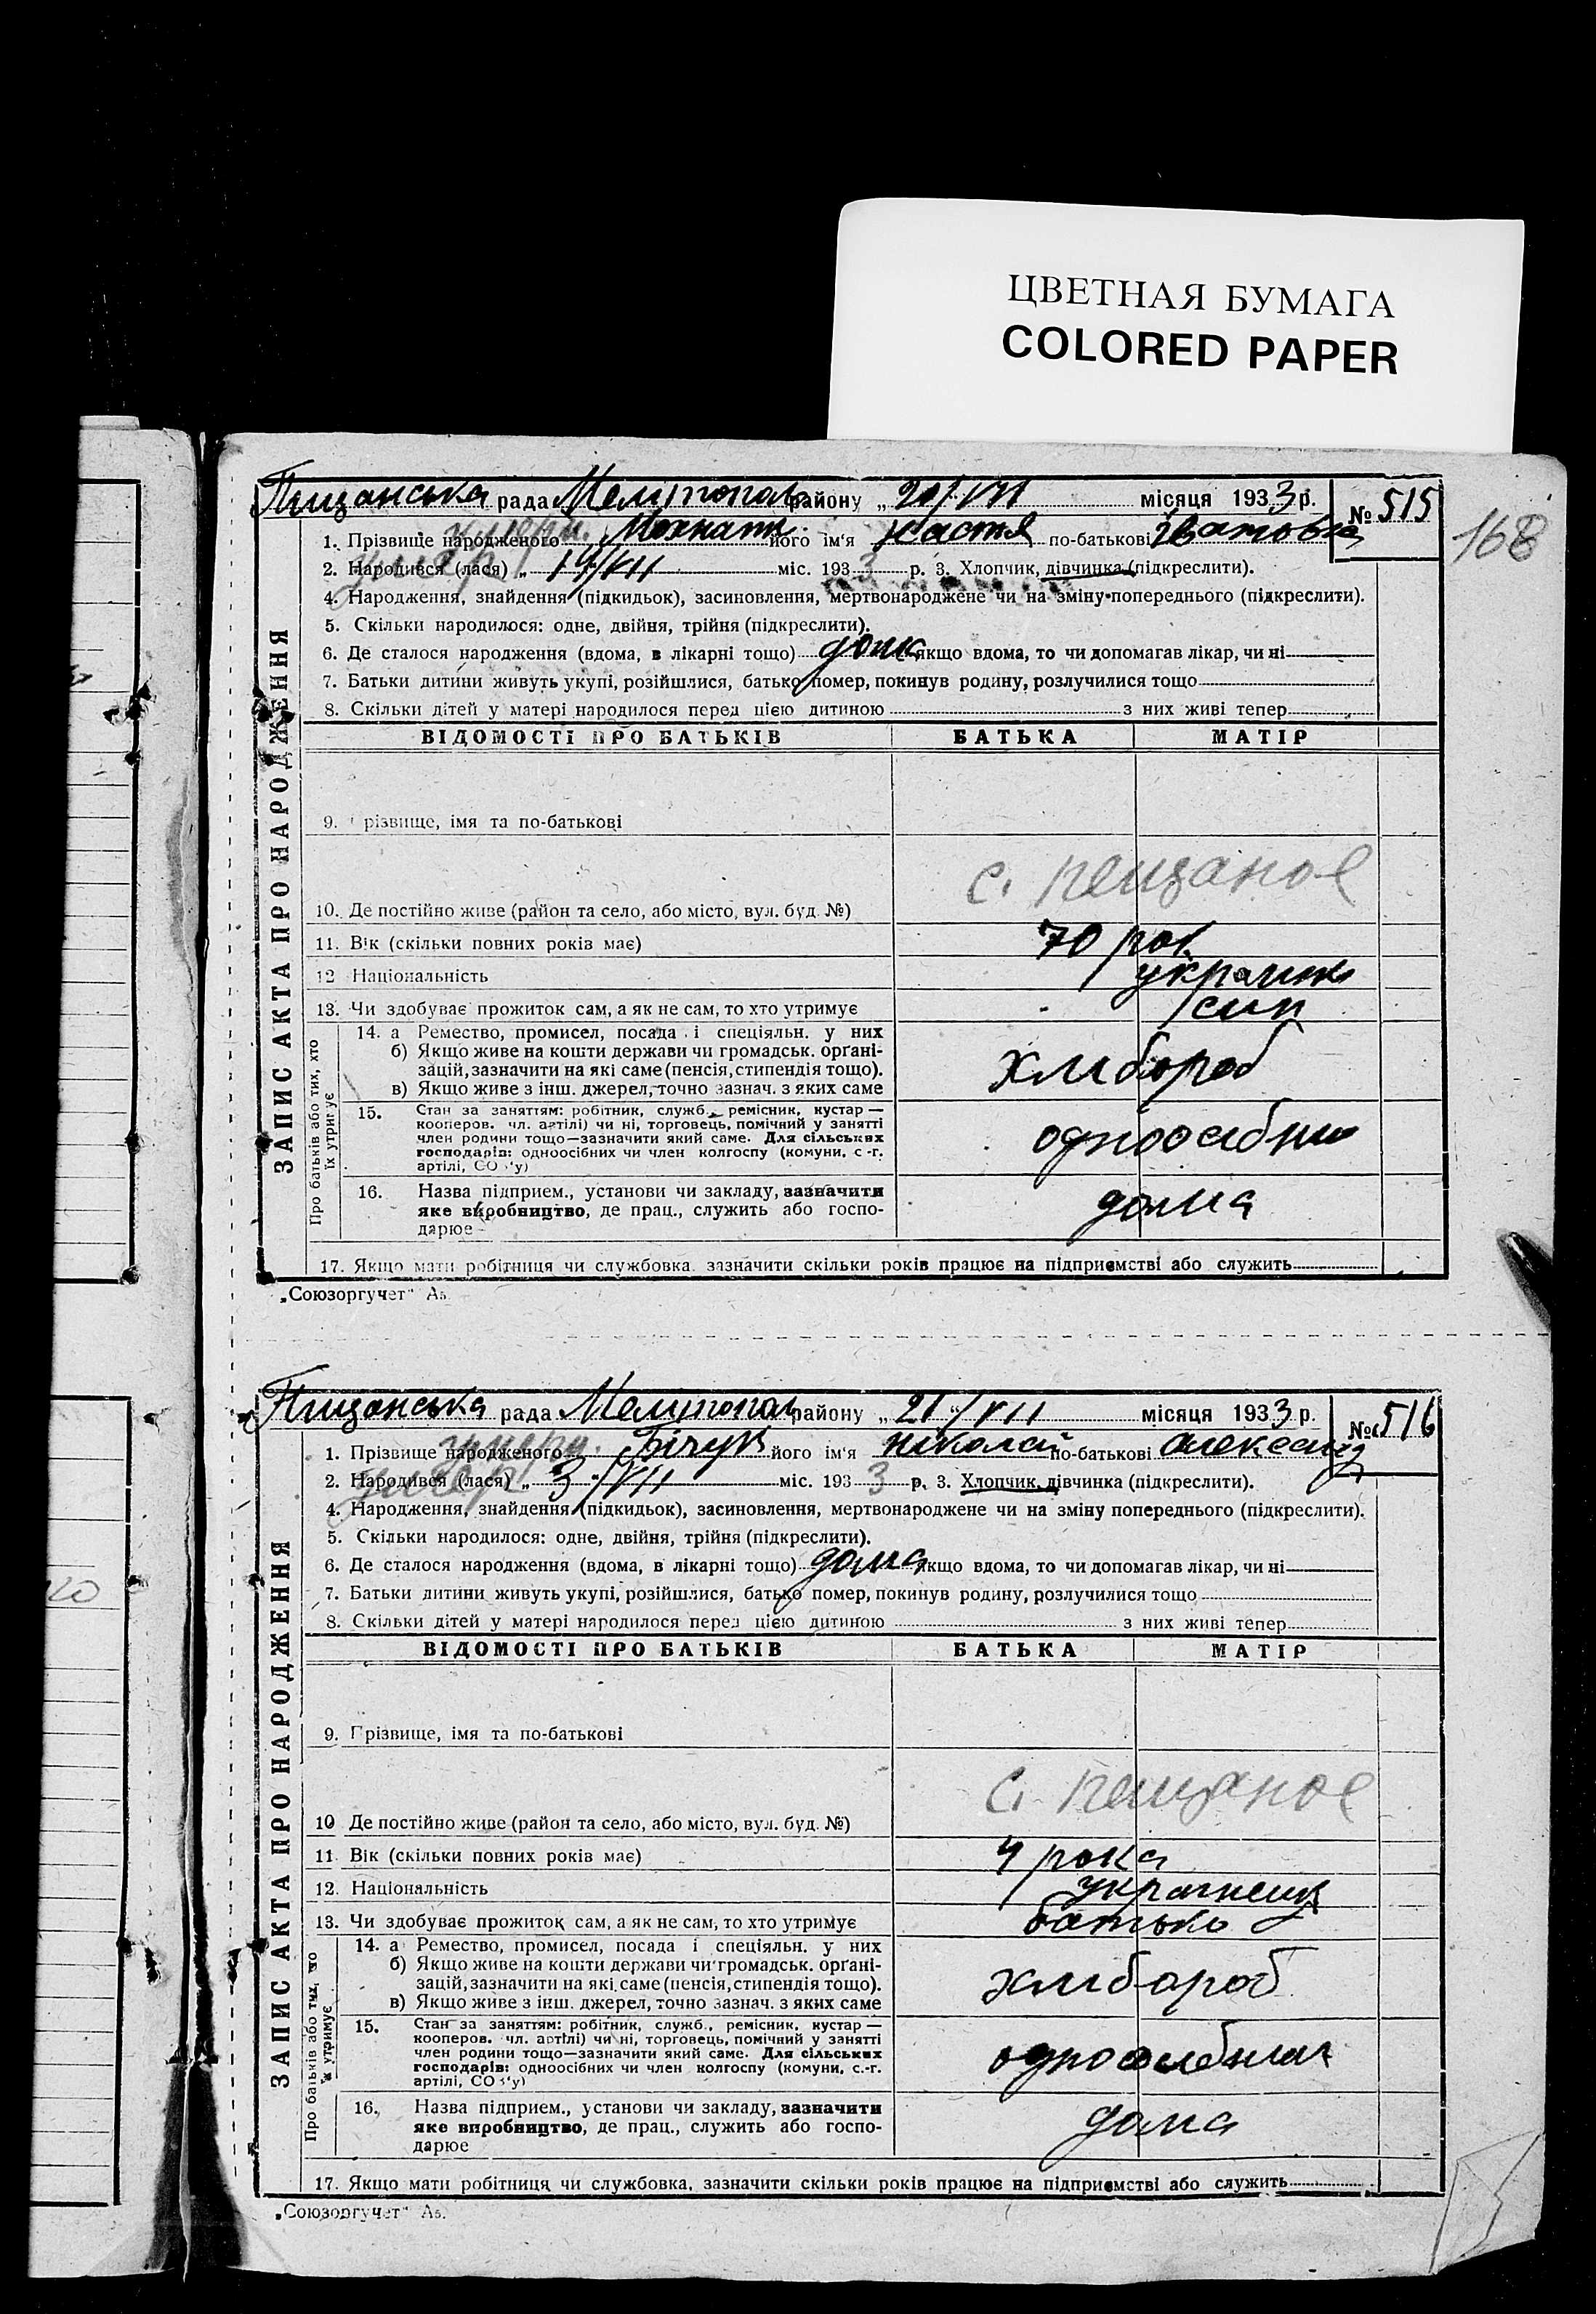 ЦВЕТНАЯ БУМАГА
COLORED PAPER
168
Пищанська рада Мелітополь району „ 20/VII місяця 1933 р. № 515
умерш.
1. Прізвище народженого Мохнатк його ім'я Настя по-батькові
умер
2. Народився (лася) „ 17/VII міс. 193 3 р. 3. Хлопчик, дівчинка (підкреслити).
4. Народження, знайдення (підкидьок), засиновлення, мертвонароджене чи на зміну попереднього (підкреслити).
5. Скільки народилося: одне, двійня, трійня (підкреслити).
6. Де сталося народження (вдома, в лікарні тощо) дома якщо вдома, то чи допомагав лікар, чи ні
7. Батьки дитини живуть укупі, розійшлися, батько помер, покинув родину, розлучилися тощо
8. Скільки дітей у матері народилося перед цією дитиною з них живі тепер
ЗАПИС АКТА ПРО НАРОДЖЕННЯ
ВІДОМОСТІ ПРО БАТЬКІВ БАТЬКА МАТІР
9. Прізвище, імя та по-батькові
с. Пещаное
10. Де постійно живе (район та село, або місто, вул. буд. №)
11. Вік (скільки повних років має) 70 рок.
12 Національність україн
13. Чи здобуває прожиток сам, а як не сам, то хто утримує син
Про батьків або тих, хто їх утримує
14. а Ремество, промисел, посада і спеціяльн. у них
б) Якщо живе на кошти держави чи громадськ. орґані-
зацій, зазначити на які саме (пенсія, стипендія тощо). хлібороб
в) Якщо живе з інш. джерел, точно зазнач. з яких саме
15. Стан за заняттям: робітник, служб., ремісник, кустар —
кооперов. чл. артілі) чи ні, торговець, помічний у занятті
член родини тощо—зазначити який саме. Для сільських одноосібник
господарів: одноосібних чи член колгоспу (комуни, с.-г.
артілі, СО 'у)
16. Назва підприєм., установи чи закладу, зазначити
яке виробництво, де прац., служить або госпо- дома
дарює
17. Якщо мати робітниця чи службовка, зазначити скільки років працює на підприємстві або служить
„Союзоргучет“ А₅.
Пищанська рада Мелітополь району „ 21/VII місяця 1933 р. № 516
умерш.
1. Прізвище народженого Бічук його ім'я Ніколай по-батькові Александ
умер
2. Народився (лася) „ 3/VII міс. 193 3 р. 3. Хлопчик, дівчинка (підкреслити).
4. Народження, знайдення (підкидьок), засиновлення, мертвонароджене чи на зміну попереднього (підкреслити).
5. Скільки народилося: одне, двійня, трійня (підкреслити).
6. Де сталося народження (вдома, в лікарні тощо) дома якщо вдома, то чи допомагав лікар, чи ні
7. Батьки дитини живуть укупі, розійшлися, батько помер, покинув родину, розлучилися тощо
8. Скільки дітей у матері народилося перед цією дитиною з них живі тепер
ЗАПИС АКТА ПРО НАРОДЖЕННЯ
ВІДОМОСТІ ПРО БАТЬКІВ БАТЬКА МАТІР
9. Прізвище, імя та по-батькові
с. Пещаное
10 Де постійно живе (район та село, або місто, вул. буд. №)
11 Вік (скільки повних років має) 4 рока
12. Національність українец
13. Чи здобуває прожиток сам, а як не сам, то хто утримує батько
Про батьків або тих, хто їх утримує
14. а Ремество, промисел, посада і спеціяльн. у них
б) Якщо живе на кошти держави чи громадськ. орґані-
зацій, зазначити на які саме (пенсія, стипендія тощо). хлібороб
в) Якщо живе з інш. джерел, точно зазнач. з яких саме
15. Стан за заняттям: робітник, служб., ремісник, кустар —
кооперов. чл. артілі) чи ні, торговець, помічний у занятті
член родини тощо—зазначити який саме. Для сільських одноосібник
господарів: одноосібних чи член колгоспу (комуни, с.-г.
артілі, СО 'у)
16. Назва підприєм., установи чи закладу, зазначити
яке виробництво, де прац., служить або госпо- дома
дарює
17. Якщо мати робітниця чи службовка, зазначити скільки років працює на підприємстві або служить
„Союзоргучет“ А₅.